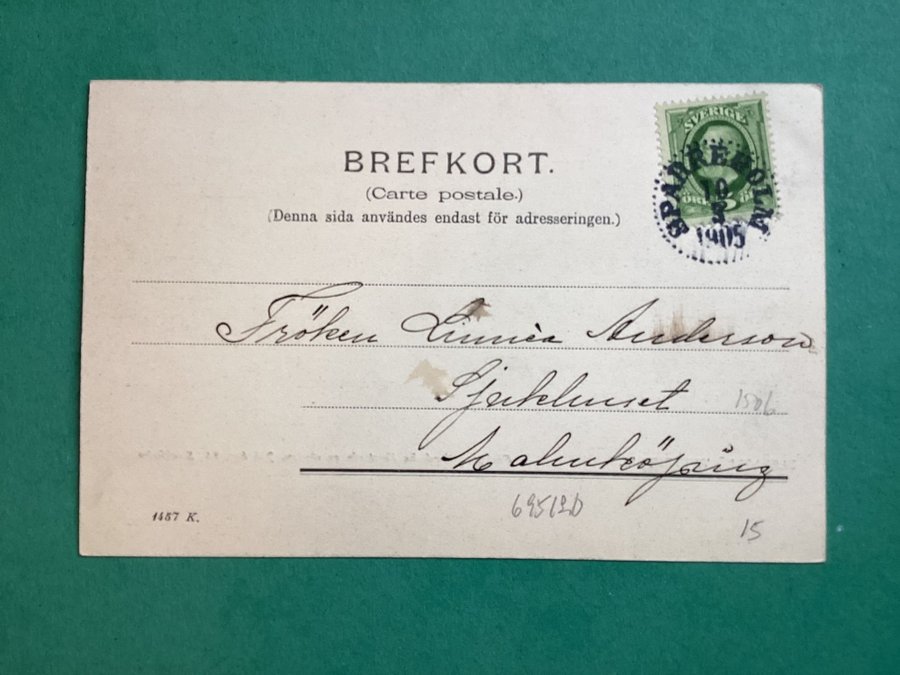 BREFKORT.
(Carte postale.)
(Denna sida användes endast för adresseringen.)
SVERIGE
SPARREHOLM
10
3
1905
Fröken Linnéa Anderson
Sjukhuset
1506
Malmköping
1457 K.
69512D
15